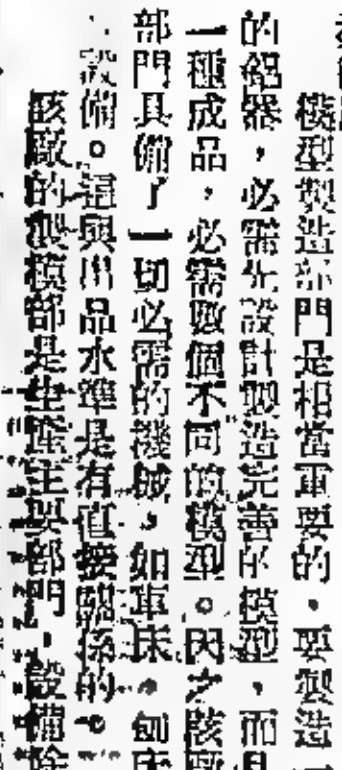 模型製造部門是相當重要的。要製造
的鋁器,必需先設計製造完善的模型,而且
一種成品,必需數個不同的模型。因之該廠
部門具備了一切必需的機械,如車床。刨床
設備。這與出品水準是有直接關係的。
該廠的製模部是生產主要部門,設備除